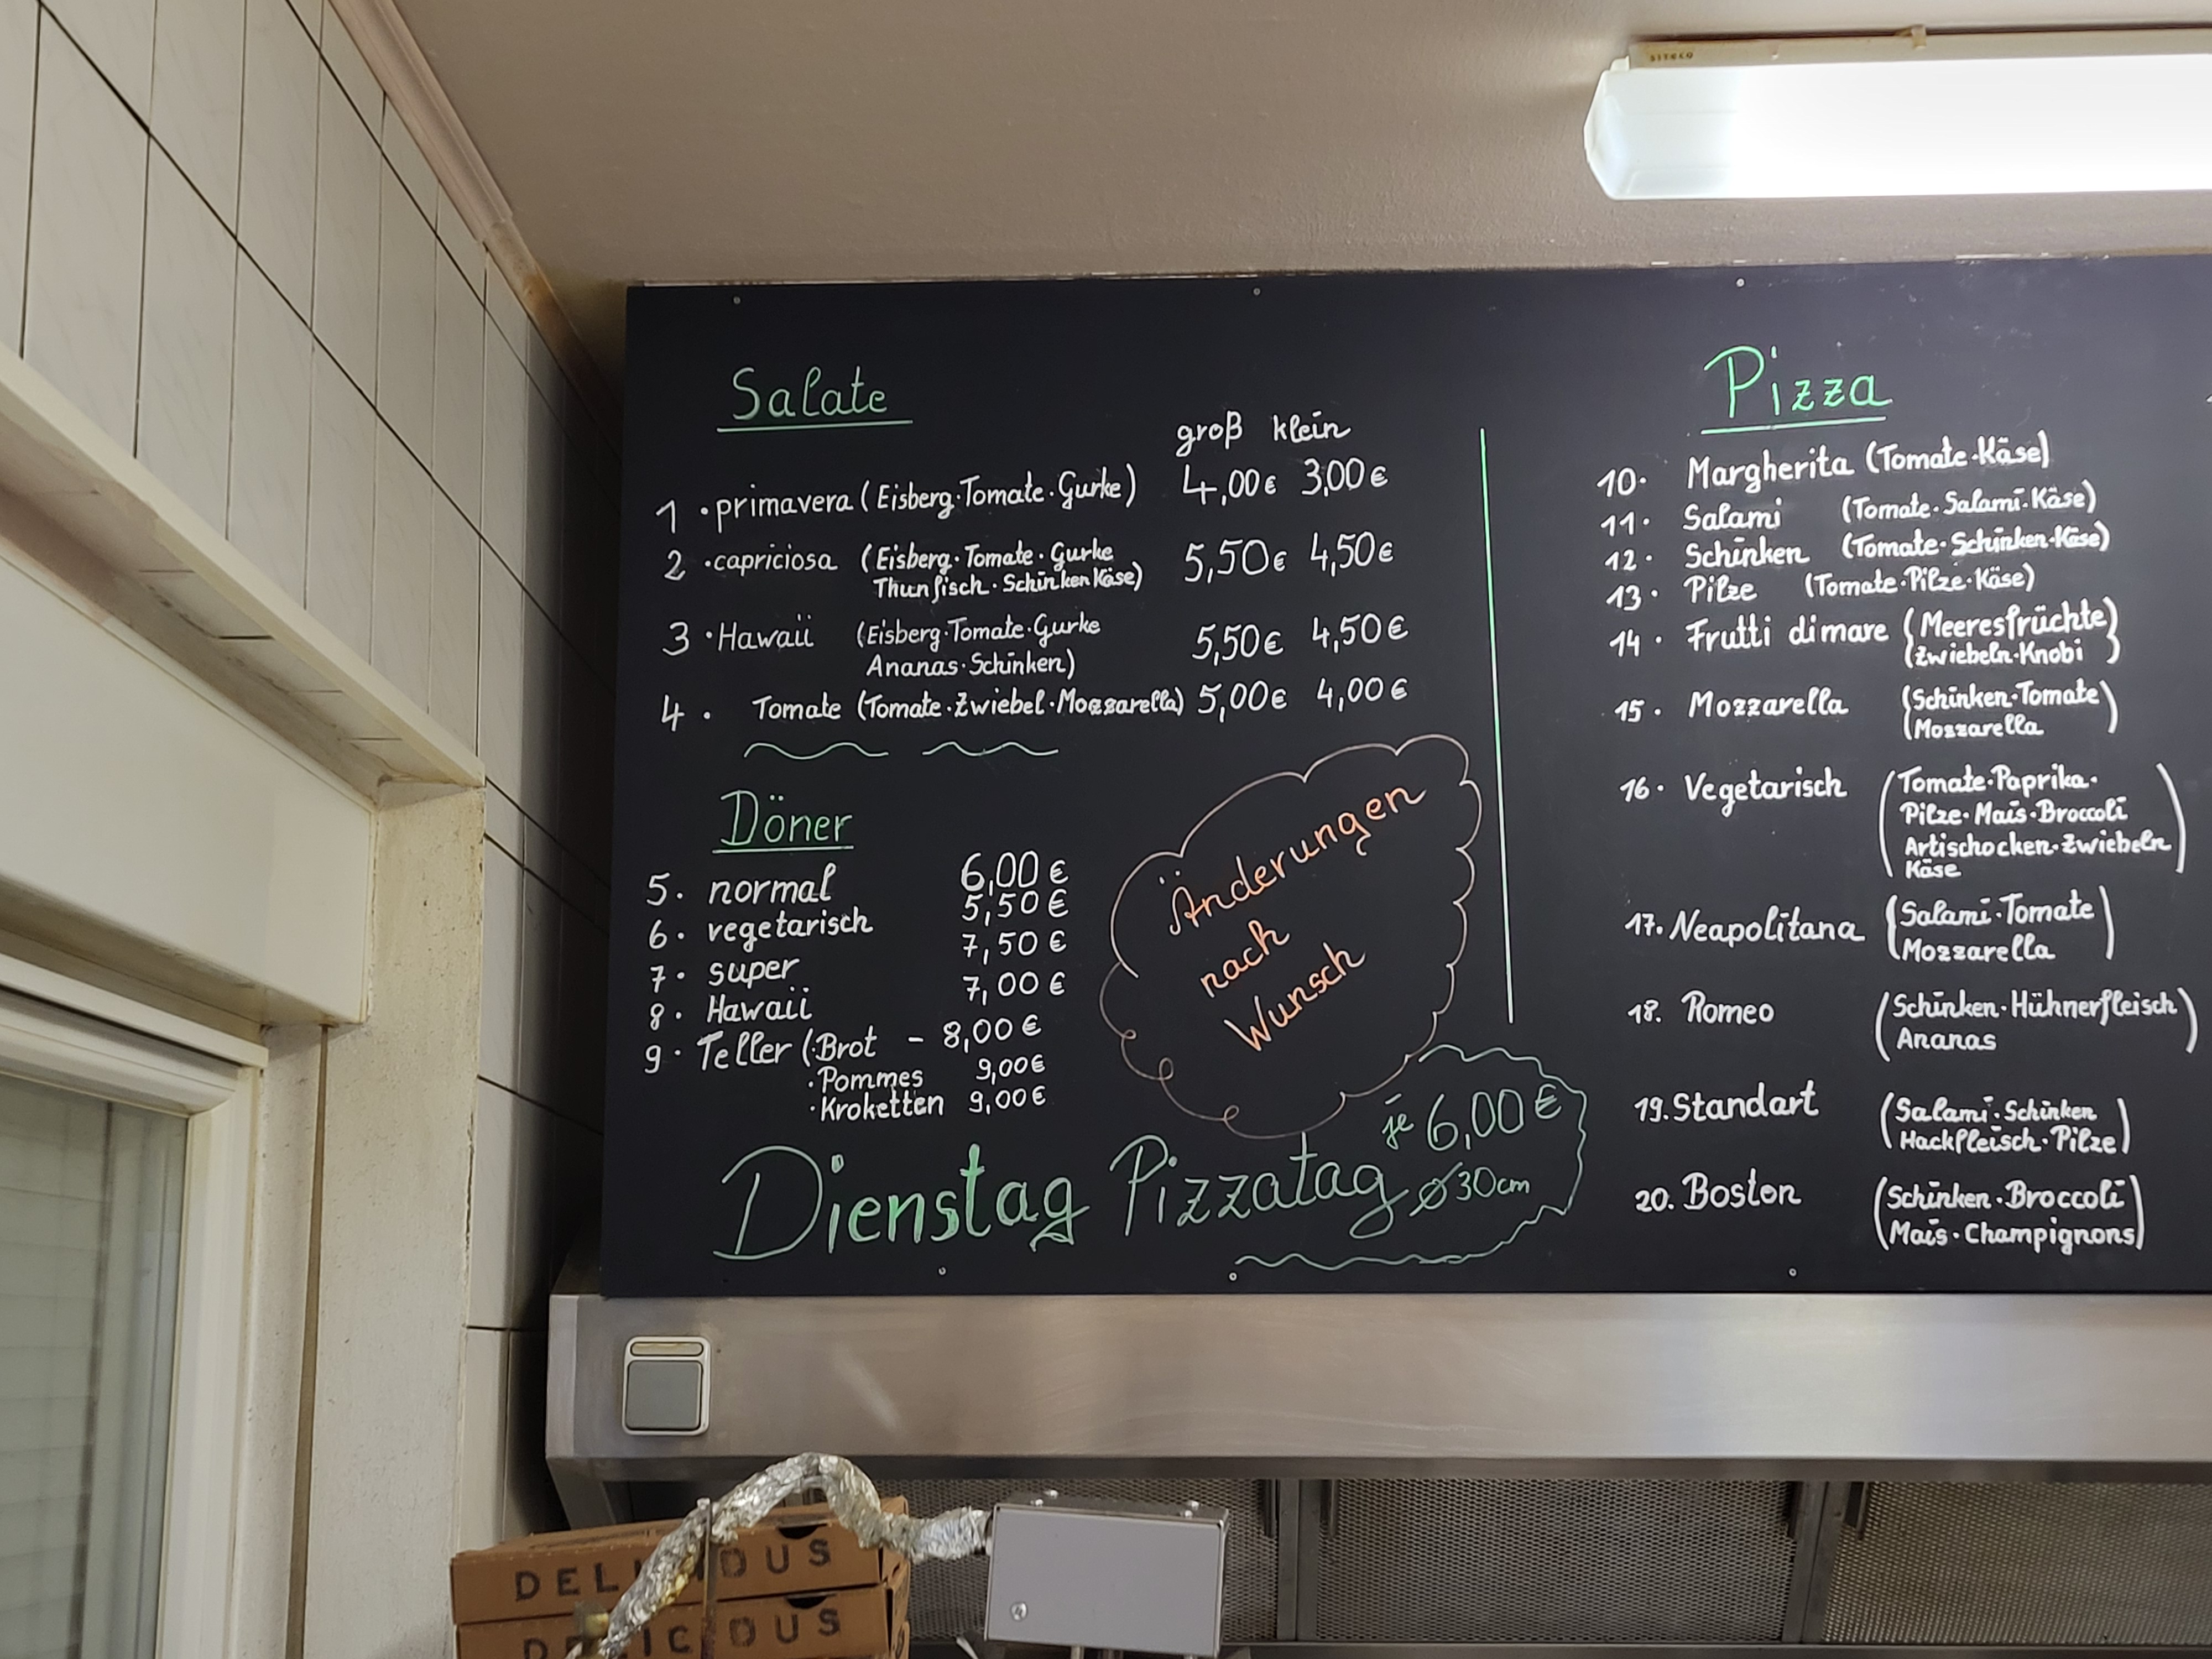 siteco
Salate
groß klein
1 · primavera (Eisberg·Tomate·Gurke) 4,00€ 3,00€
2 · capriciosa (Eisberg·Tomate·Gurke 5,50€ 4,50€
Thunfisch·Schinken Käse)
3 · Hawaii (Eisberg·Tomate·Gurke 5,50€ 4,50€
Ananas·Schinken)
4 . Tomate (Tomate·Zwiebel·Mozzarella) 5,00€ 4,00€
Döner
5. normal 6,00€
6. vegetarisch 5,50€
7. super 7,50€
8. Hawaii 7,00€
9. Teller (Brot - 8,00€
·Pommes 9,00€
·Kroketten 9,00€
Änderungen
nach
Wunsch
Dienstag Pizzatag je 6,00€
ø30cm
Pizza
10. Margherita (Tomate·Käse)
11. Salami (Tomate·Salami·Käse)
12. Schinken (Tomate·Schinken·Käse)
13. Pilze (Tomate·Pilze·Käse)
14. Frutti di mare (Meeresfrüchte)
(Zwiebeln·Knobi )
15. Mozzarella (Schinken·Tomate
(Mozzarella )
16. Vegetarisch (Tomate·Paprika·
Pilze·Mais·Broccoli
Artischocken·Zwiebeln
Käse )
17. Neapolitana (Salami·Tomate
Mozzarella )
18. Romeo (Schinken·Hühnerfleisch
Ananas )
19. Standart (Salami·Schinken
Hackfleisch·Pilze)
20. Boston (Schinken·Broccoli
Mais·Champignons)
DELICIOUS
DELICIOUS